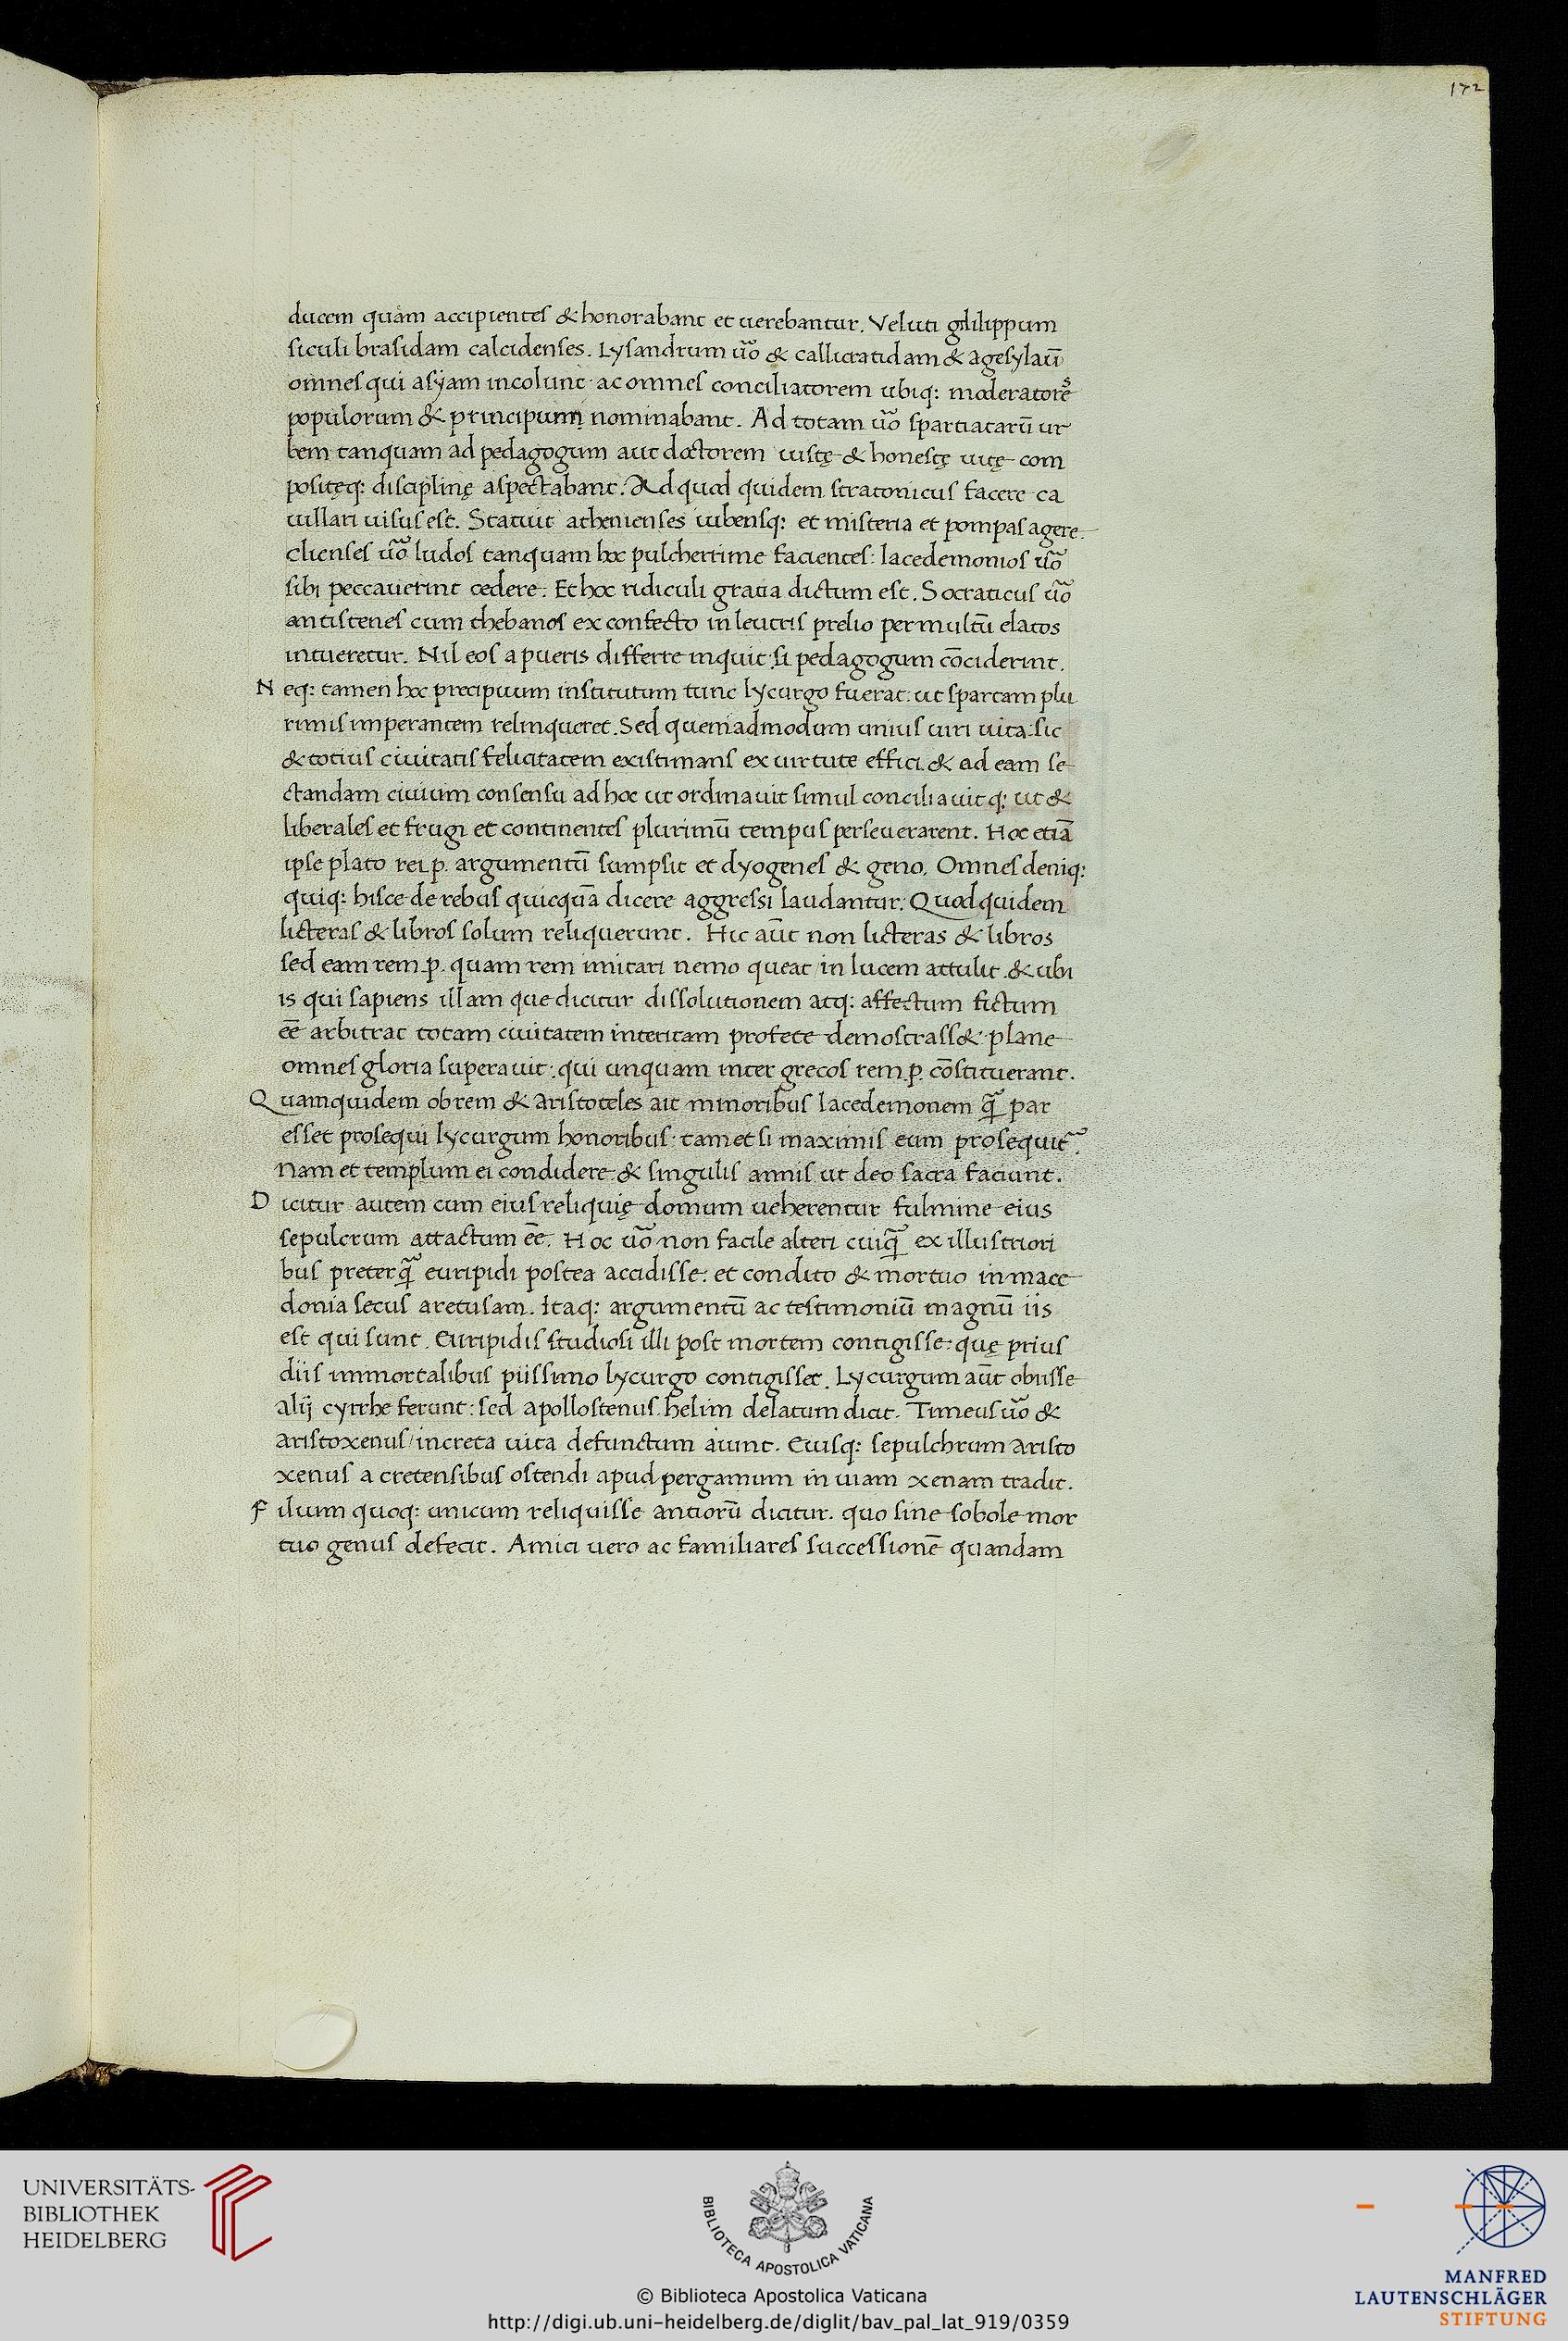 172
ducem quam accipientes & honorabant et uerebantur. Veluti gilippum
siculi brasidam calcidenses. Lysandrum ũo & callicratidam & agesylaũ
omnes qui asyam incolunt ac omnes conciliatorem ubiq: moderatorẽs
populorum & principum nominabant. Ad totam ũo spartiatarũ ur
bem tanquam ad pedagogum aut doctorem iustę & honestę uitę com
positęq: disciplinę aspectabant. Ad quod quidem stratonicus facere ca
uillari uisus est. Statuit athenienses iubensq: et misteria et pompas agere
elienses ũo ludos tanquam hoc pulcherrime facientes: lacedemonios ũo
sibi peccauerint cedere. Et hoc ridiculi gratia dictum est. Socraticus ũo
antistenes cum thebanos ex confecto in leuctris prelio permultũ elatos
intueretur. Nil eos a pueris differre inquit si pedagogum cõciderint.
Neq: tamen hoc precipuum institutum tunc lycurgo fuerat: ut spartam plu
rimis imperantem relinqueret. Sed quemadmodum unius uiri uita: sic
& totius ciuitatis felicitatem existimans ex uirtute effici & ad eam se
ctandam ciuium consensu ad hoc ut ordinauit simul conciliauit q: ut &
liberales et frugi et continentes plurimũ tempus perseuerarent. Hoc etiã
ipse plato rei p. argumentũ sumpsit et dyogenes & geno. Omnes deniq:
quiq: hisce de rebus quicquã dicere aggressi laudantur. Quod quidem
licteras & libros solum reliquerunt. Hic aũt non licteras & libros
sed eam rem p. quam rem imitari nemo queat in lucem attulit & ubi
is qui sapiens illam que dicitur dissolutionem atq: affectum fictum
eẽ arbitrat totam ciuitatem interitam profete demostrass& plane
omnes gloria superauit: qui unquam inter grecos rem p. cõstituerant.
Quamquidem obrem & aristoteles ait minoribus lacedemonem q̃ par
esset prosequi lycurgum honoribus: tametsi maximis eum prosequit̃.
Nam et templum ei condidere & singulis annis ut deo sacra faciunt.
Dicitur autem cum eius reliquię domum ueherentur fulmine eius
sepulcrum attactum eẽ. Hoc ũo non facile alteri cuiq̃ ex illustriori
bus preterq̃ euripidi postea accidisse: et condito & mortuo in mace
donia secus aretusam. Itaq: argumentũ ac testimoniũ magnũ iis
est qui sunt Euripidis studiosi illi post mortem contigisse: quę prius
diis immortalibus piissimo lycurgo contigisset. Lycurgum aũt obiisse
alij cyrrhe ferunt: sed apollostenus helim delatum dicit. Timeus ũo &
aristoxenus/ increta uita defunctum aiunt. Eiusq: sepulchrum aristo
xenus a cretensibus ostendi apud pergamum in uiam xenam tradit.
Filium quoq: unicum reliquisse antiorũ dicitur. quo sine sobole mor
tuo genus defecit. Amici uero ac familiares successionẽ quandam
UNIVERSITÄTS-
BIBLIOTHEK
HEIDELBERG
BIBLIOTECA APOSTOLICA VATICANA
© Biblioteca Apostolica Vaticana
http://digi.ub.uni-heidelberg.de/diglit/bav_pal_lat_919/0359
MANFRED
LAUTENSCHLÄGER
STIFTUNG